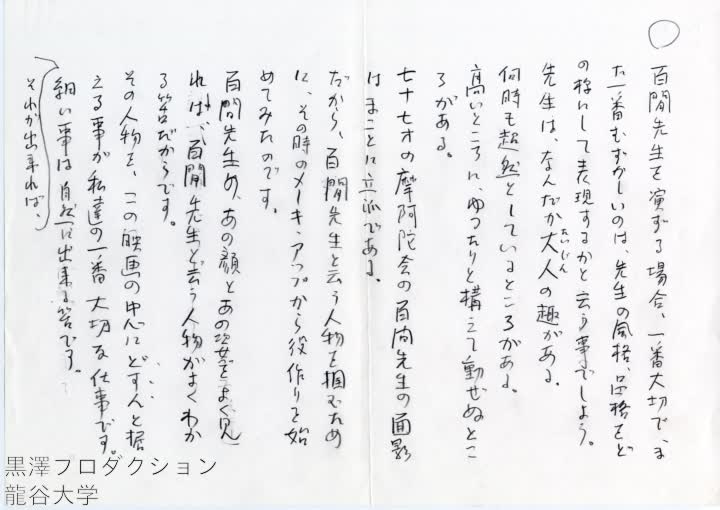 ○
百閒先生を演ずる場合、一番大切で、ま
た一番むずかしいのは、先生の風格、品格をど
の様にして表現するかと云う事でしょう。
先生は、なんだか大人の趣がある。
たいじん
何時も超然としているところがある。
高いところに、ゆったりと構えて動ぜぬとこ
ろがある。
七十七才の摩阿陀会の百閒先生の面影
はまことに立派である。
だから、百閒先生と云う人物を掴むため
に、その時のメーキ、アップから役作りを始
めてみたのです。
百閒先生の、あの顔とあの姿をよく見
れば、百閒先生と云う人物がよくわか
る筈だからです。
その人物を、この映画の中心にどすんと据
える事が私達の一番大切な仕事です。
それが出来れば、
細い事は自然に出来る筈です。
黒澤プロダクション
龍谷大学